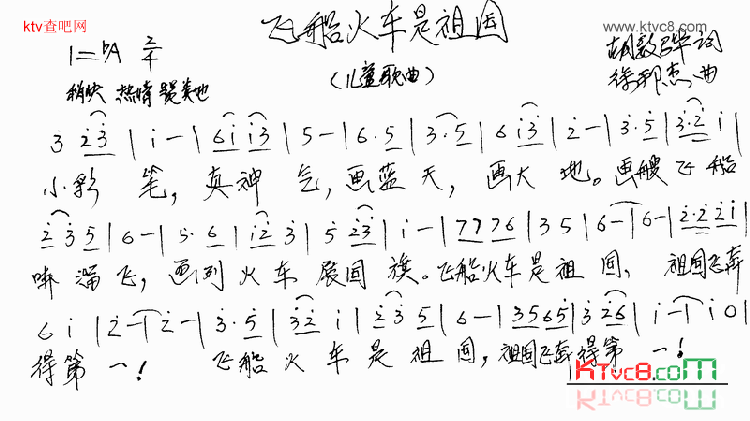 ktv查吧网
飞船火车是祖国
www.ktvc8.com
1=bA 2/4
(儿童歌曲)
胡敦骅词
徐邦杰曲
稍快 热情 赞美地
3 2 3 | i - | 6 i i 3 | 5 - | 6. 5 | 3. 5 | 6 i 3 | 2 - | 3. 5 | 3. 2 i |
小彩笔,真神气,画蓝天,画大地。画艘飞船
2 3 5 | 6 - | 5. 6 | i 2 3 | 5 2 3 | i - | 7 7 7 6 | 3 5 | 6 - | 6 - | 2. 2 2 i |
嗨溜飞,画列火车展国旗。飞船火车是祖国,祖国飞奔
6 i | 2 - | 2 - | 3. 5 | 3 2 i | 2 3 5 | 6 - | 3 5 6 5 | 3 2 6 | i - | i 0 |
得第一!飞船火车是祖国,祖国飞奔得第一!
KTvc8.com